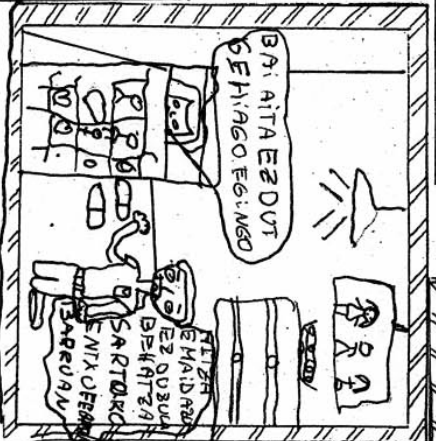 BAI AITA EZ DUT
GEHIAGO EGINGO
HITZA
EMAIDAZU
EZ DUZULA
BEHATZA
SARTUKO
BARRUAN